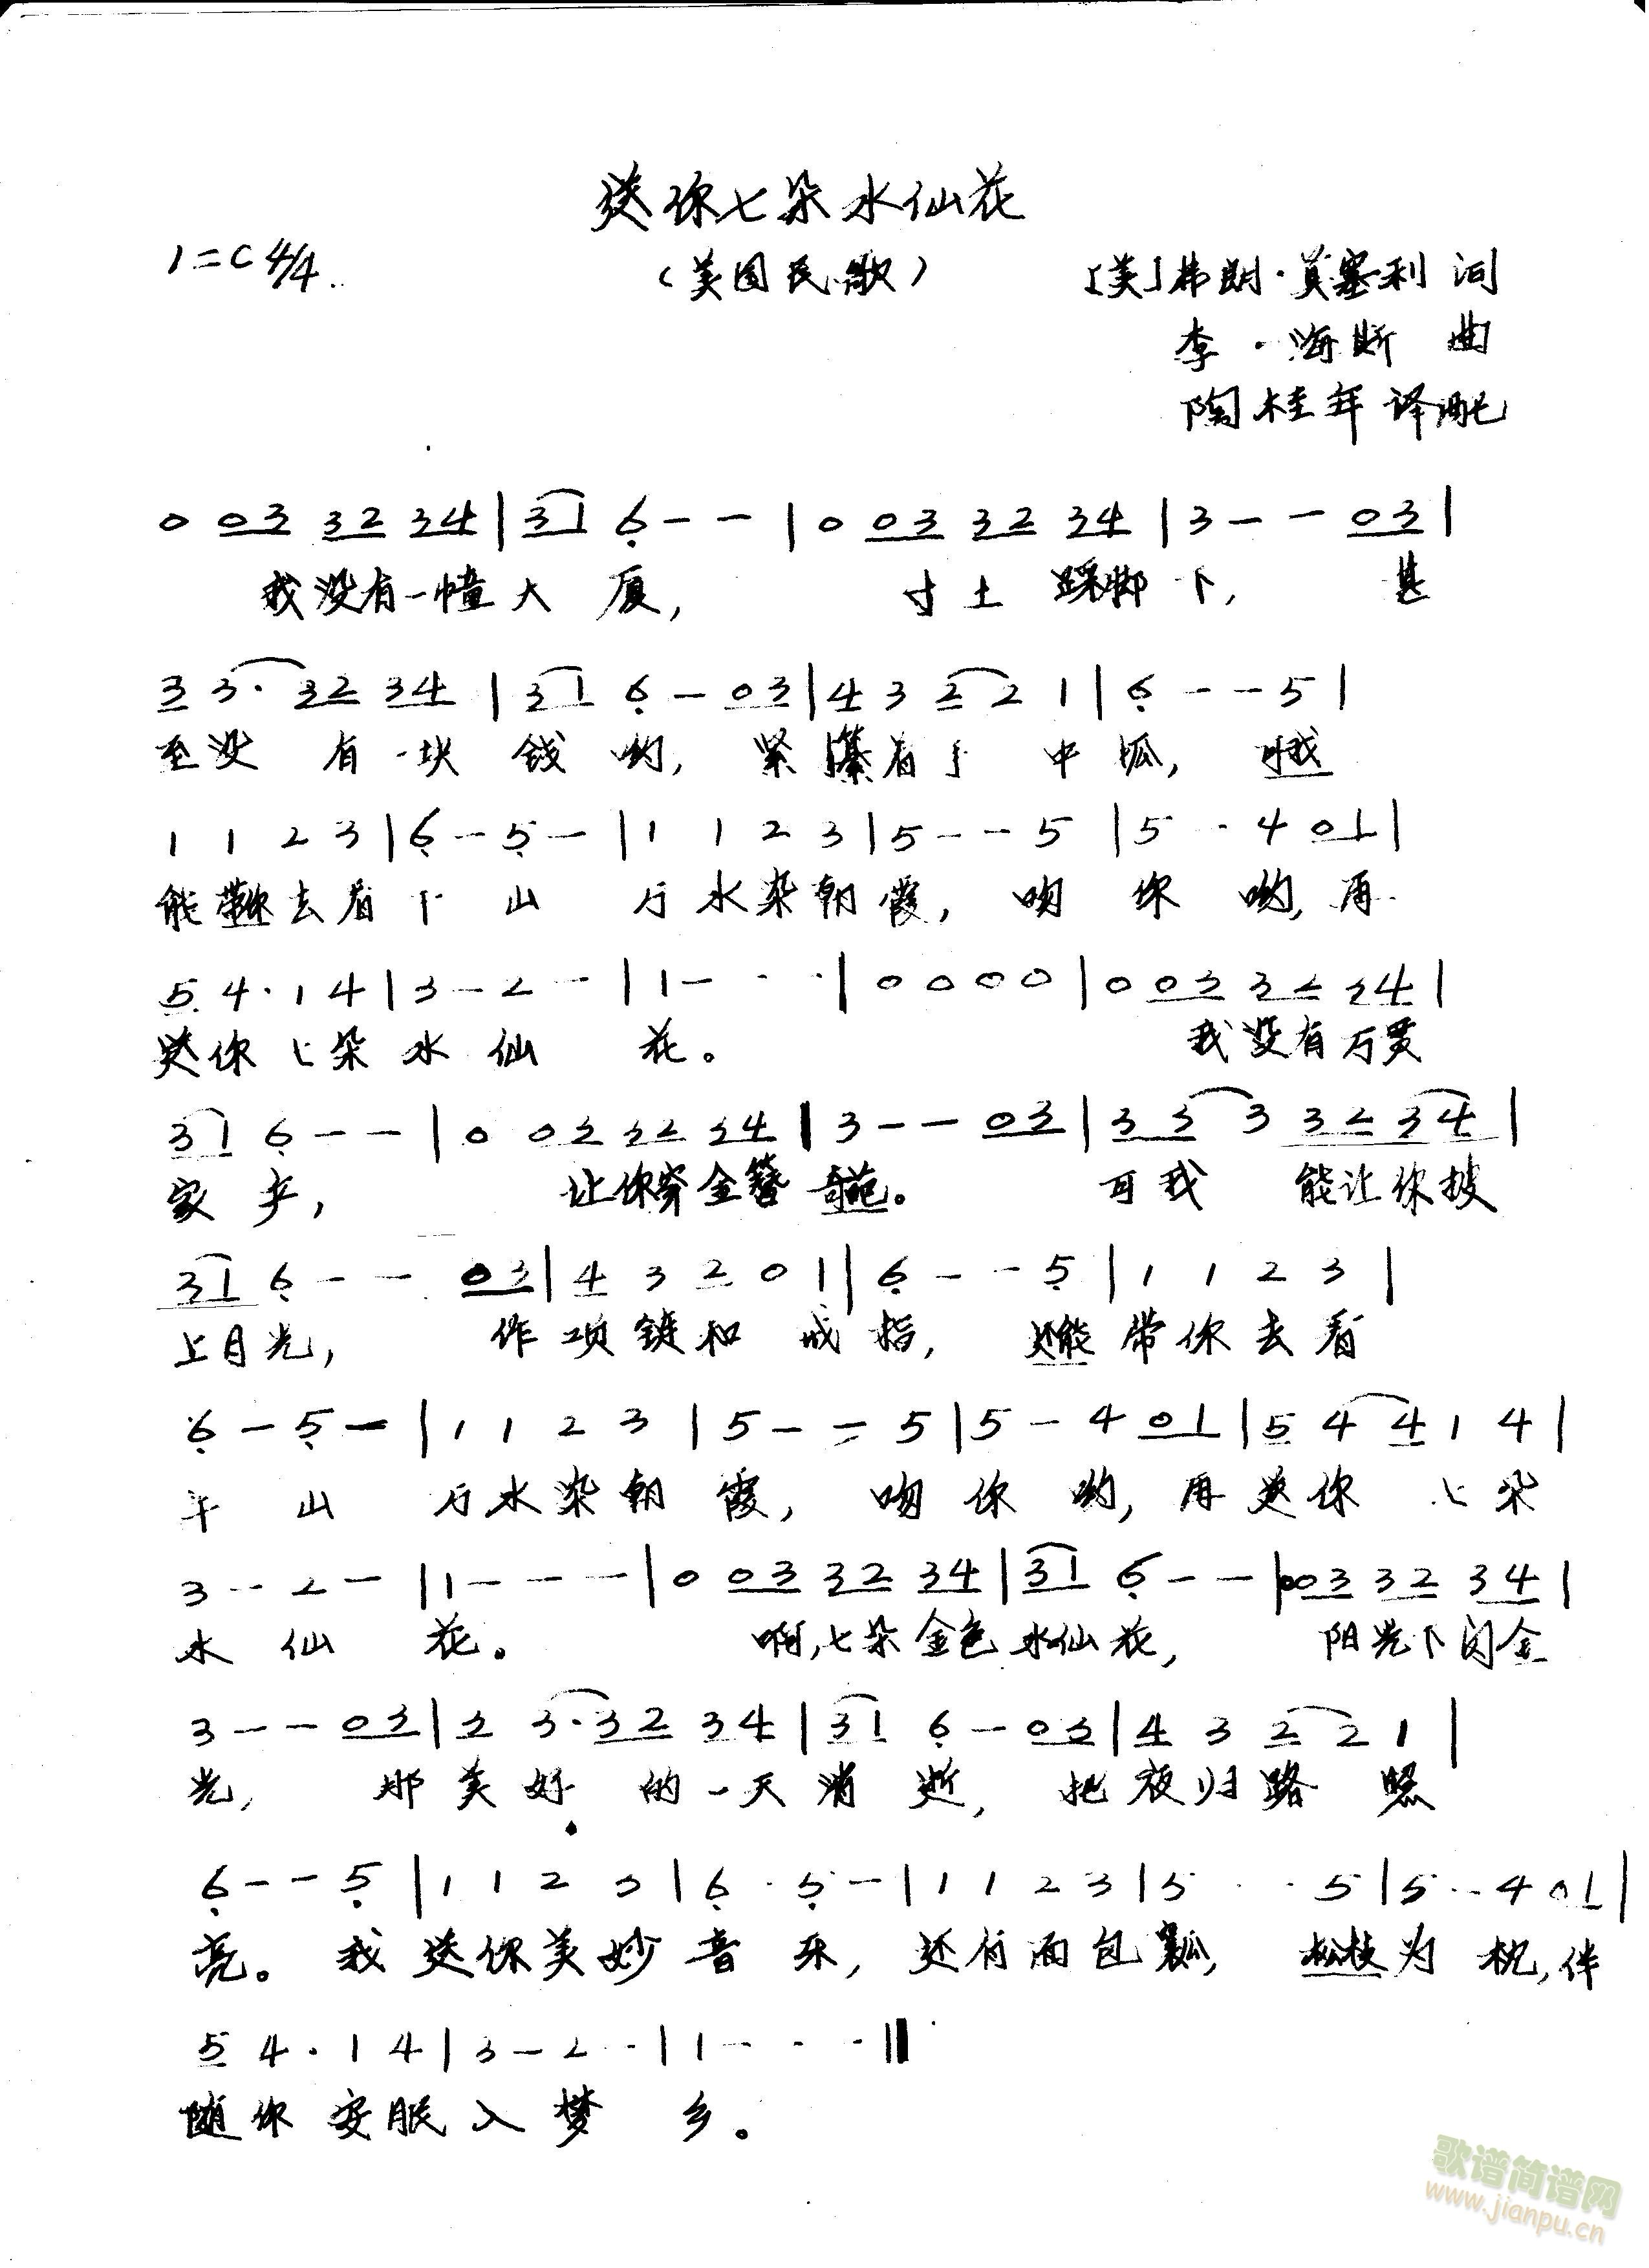 送你七朵水仙花
1=C 4/4
(美国民歌)
[美]弗朗·莫塞利 词
李·海斯 曲
陶桂年 译配
0 03 32 34 | 31 6 - - | 0 03 32 34 | 3 - - 03 |
我没有一幢大厦, 寸土踩脚下, 甚
3 3· 32 34 | 31 6 - 03 | 4 3 2 2 1 | 6 - - 5 |
至没有一块钱哟, 紧攥着手中抓, 我
1 1 2 3 | 6 - 5 - | 1 1 2 3 | 5 - - 5 | 5 - 4 01 |
能带你去看千山万水染朝霞, 吻你哟, 再
5 4· 1 4 | 3 - 2 - | 1 - - - | 0 0 0 0 | 0 03 32 34 |
送你七朵水仙花。 我没有万贯
31 6 - - | 0 03 32 34 | 3 - - 03 | 33 3 32 34 |
家产, 让你穿金簪。 可我能让你披
31 6 - - 03 | 4 3 2 0 1 | 6 - - 5 | 1 1 2 3 |
上月光, 作项链和戒指, 还能带你去看
6 - 5 - | 1 1 2 3 | 5 - - 5 | 5 - 4 01 | 5 4 4 1 4 |
千山万水染朝霞, 吻你哟, 再送你七朵
3 - 2 - | 1 - - - | 0 03 32 34 | 31 6 - - | 003 32 34 |
水仙花。 啊,七朵金色水仙花, 阳光下闪金
3 - - 03 | 3 3· 32 34 | 31 6 - 03 | 4 3 2 2 1 |
光, 那美好的一天消逝, 把夜归路照
6 - - 5 | 1 1 2 3 | 6 - 5 - | 1 1 2 3 | 5 - - 5 | 5 - 4 01 |
亮。我送你美妙音乐, 还有面包瓤, 松枝为枕, 伴
5 4· 1 4 | 3 - 2 - | 1 - - - ‖
随你安眠入梦乡。
歌谱简谱网
www.jianpu.cn